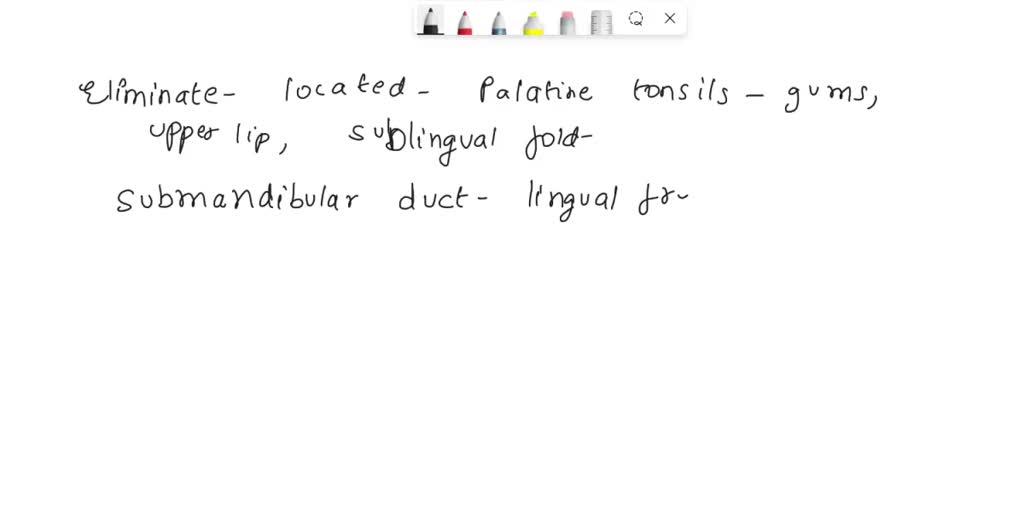 Eliminate- located - Palatine tonsils - gums,
upper lip, sublingual fold-
submandibular duct - lingual fr